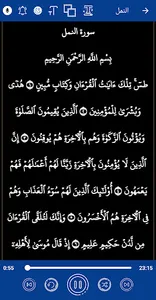 النمل
سورة النمل
بِسْمِ اللَّهِ الرَّحْمَٰنِ الرَّحِيمِ
طسٓ تِلْكَ ءَايَٰتُ الْقُرْءَانِ وَكِتَابٍ مُّبِينٍ ۝ هُدًى
وَبُشْرَىٰ لِلْمُؤْمِنِينَ ۝ الَّذِينَ يُقِيمُونَ الصَّلَوٰةَ
وَيُؤْتُونَ الزَّكَوٰةَ وَهُم بِالْءَاخِرَةِ هُمْ يُوقِنُونَ ۝ إِنَّ
الَّذِينَ لَا يُؤْمِنُونَ بِالْءَاخِرَةِ زَيَّنَّا لَهُمْ أَعْمَٰلَهُمْ فَهُمْ
يَعْمَهُونَ ۝ أُو۟لَٰٓئِكَ الَّذِينَ لَهُمْ سُوٓءُ الْعَذَابِ وَهُمْ
فِي الْءَاخِرَةِ هُمُ الْأَخْسَرُونَ ۝ وَإِنَّكَ لَتُلَقَّى الْقُرْءَانَ
مِن لَّدُنْ حَكِيمٍ عَلِيمٍ ۝ إِذْ قَالَ مُوسَىٰ لِأَهْلِهِۦٓ
0:55
23:15